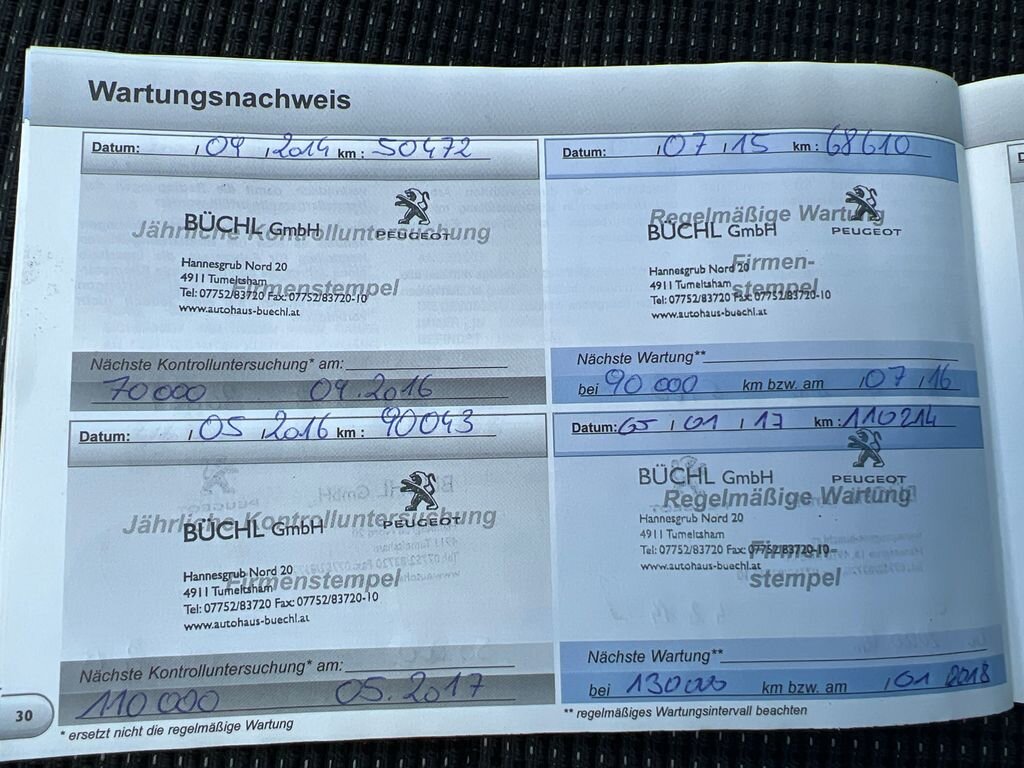 Wartungsnachweis
Datum: , 04 , 2014 km : 50472
Jährliche Kontrolluntersuchung
BÜCHL GmbH
PEUGEOT
Firmenstempel
Hannesgrub Nord 20
4911 Tumeltsham
Tel: 07752/83720 Fax: 07752/83720-10
www.autohaus-buechl.at
Nächste Kontrolluntersuchung* am:
70000 04.2016
Datum: , 07 , 15 km : 68610
Regelmäßige Wartung
BÜCHL GmbH
PEUGEOT
Firmen-
stempel
Hannesgrub Nord 20
4911 Tumeltsham
Tel: 07752/83720 Fax: 07752/83720-10
www.autohaus-buechl.at
Nächste Wartung**
bei 90 000 km bzw. am , 07 , 16
Datum: , 05 , 2016 km : 90043
Jährliche Kontrolluntersuchung
BÜCHL GmbH
PEUGEOT
Firmenstempel
Hannesgrub Nord 20
4911 Tumeltsham
Tel: 07752/83720 Fax: 07752/83720-10
www.autohaus-buechl.at
Nächste Kontrolluntersuchung* am:
110 000 05.2017
Datum: , 01 , 17 km : 110214
BÜCHL GmbH
PEUGEOT
Regelmäßige Wartung
Hannesgrub Nord 20
4911 Tumeltsham
Tel: 07752/83720 Fax: 07752/83720-10
www.autohaus-buechl.at
Firmen-
stempel
Nächste Wartung**
bei 130000 km bzw. am , 01 2018
30
* ersetzt nicht die regelmäßige Wartung
** regelmäßiges Wartungsintervall beachten